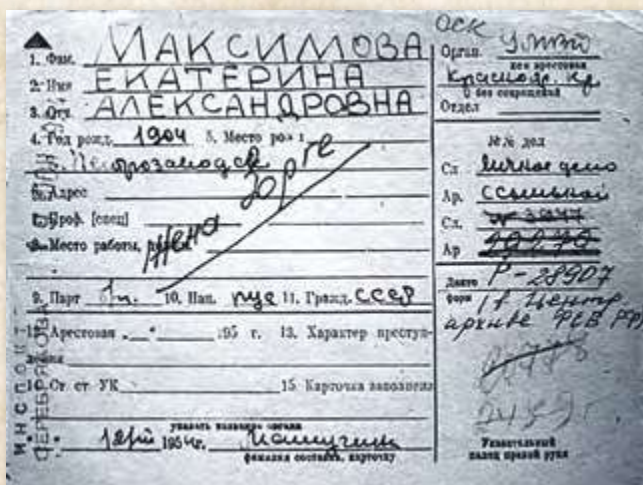 1. Фам. МАКСИМОВА
2. Имя ЕКАТЕРИНА
3. Отч. АЛЕКСАНДРОВНА
4. Год рожд. 1904 5. Место рож
г. Петрозаводск
6. Адрес
7. Проф. [спец]
8. Место работы,
жена Зорге
9. Парт б/п. 10. Нац. рус 11. Гражд. СССР
12. Арестован " " 195 г. 13. Характер преступ-
ления
14. Ст. ст УК 15 Карточка заполнена
указать название органа
1954 г.
фамилия составл. карточку
ОСК
Орган.
кем арестован
Краснояр. кр
без сокращений
Отдел
№№ дел
Сл Личное дело
Ар. ссыльной
Сл.
Ар
Р-28907
форм
1 в Центр
архиве ФСБ РФ
Указательный
палец правой руки